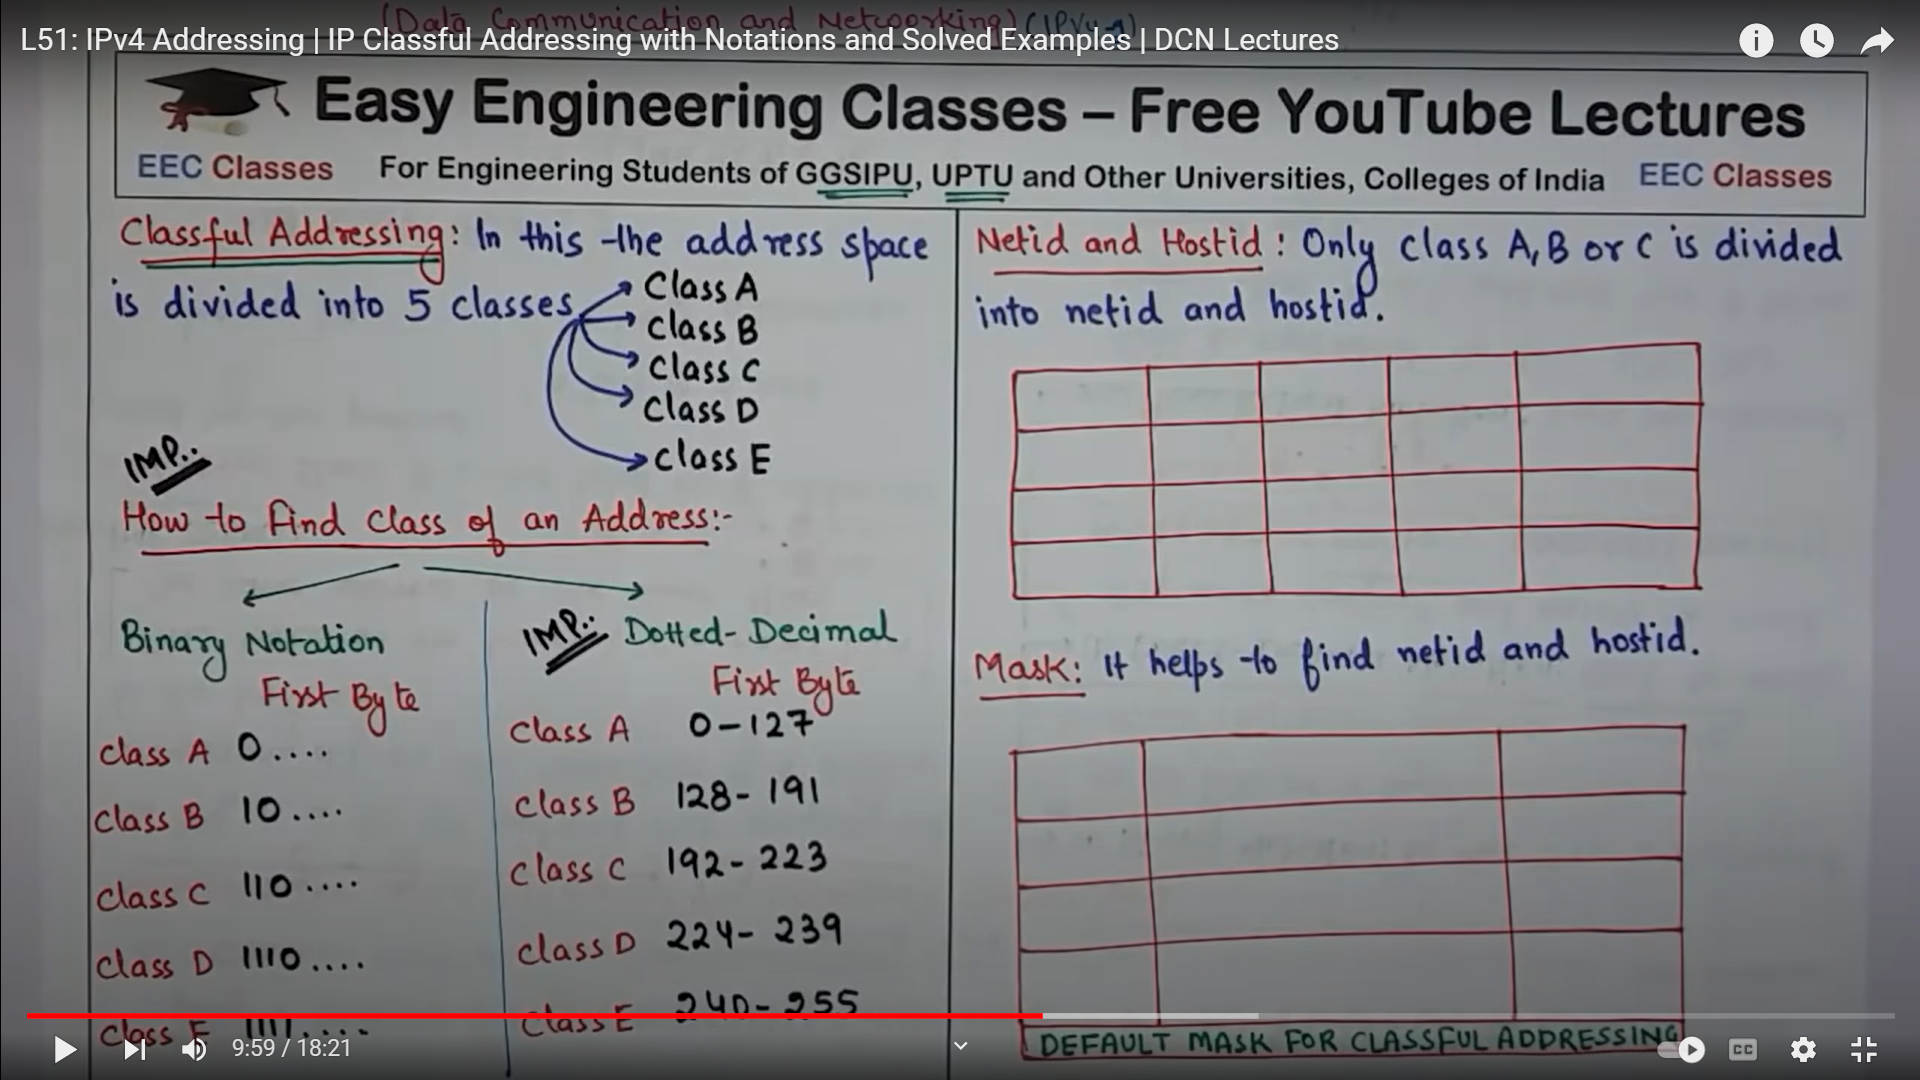 (Data Communication and Networking) (IPV4
L51: IPv4 Addressing | IP Classful Addressing with Notations and Solved Examples | DCN Lectures
Easy Engineering Classes – Free YouTube Lectures
EEC Classes For Engineering Students of GGSIPU, UPTU and Other Universities, Colleges of India EEC Classes
Classful Addressing: In this the address space
is divided into 5 classes
Class A
Class B
Class C
Class D
Class E
IMP..
How to find Class of an Address:-
Binary Notation
First Byte
Class A 0....
Class B 10....
Class C 110....
Class D 1110....
Class E 1111....
IMP.. Dotted-Decimal
First Byte
Class A 0-127
Class B 128-191
Class C 192-223
Class D 224-239
Class E 240-255
Netid and Hostid: Only class A, B or C is divided
into netid and hostid.
Mask: It helps to find netid and hostid.
DEFAULT MASK FOR CLASSFUL ADDRESSING
9:59 / 18:21
CC